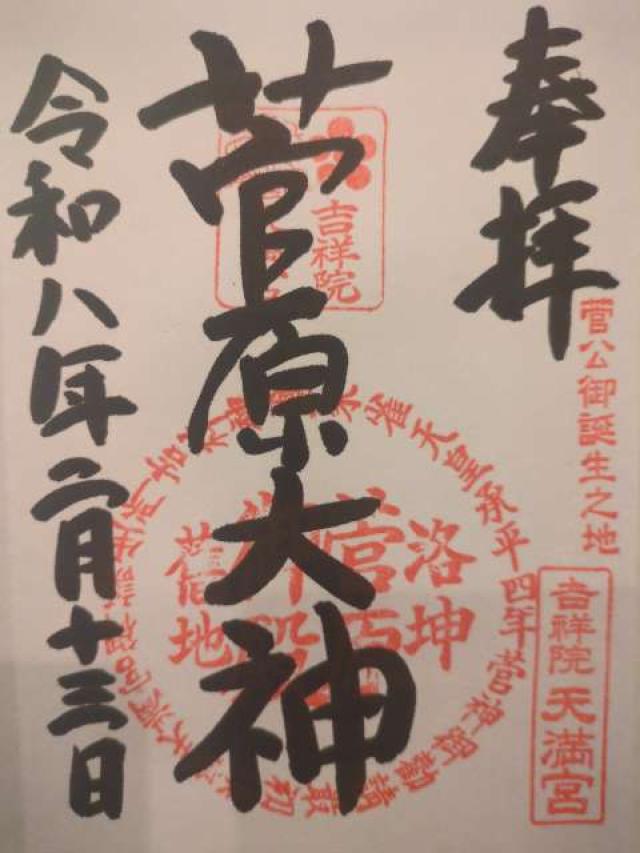 奉拝
菅公御誕生之地
吉祥院天満宮
菅原大神
吉祥院
朱雀天皇承平四年菅神御勸請最初
洛坤
菅
地
令和八年二月十三日